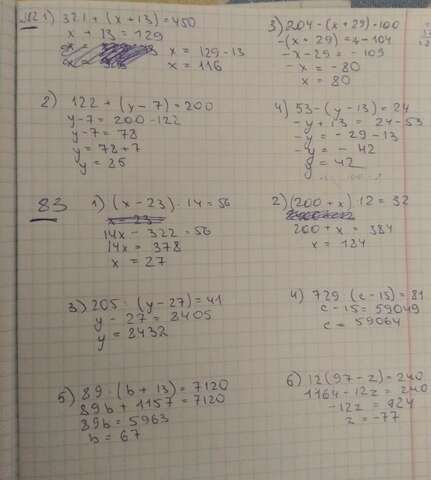 821) 321 + (x + 13) = 450
x + 13 = 129
x = 129 - 13
x = 116
2) 122 + (y - 7) = 200
y - 7 = 200 - 122
y - 7 = 78
y = 78 + 7
y = 85
3) 204 - (x + 29) = 100
-(x + 29) = -104
-x - 29 = - 109
-x = -80
x = 80
4) 53 - (y - 13) = 24
-y + 13 = 24 - 53
-y = - 29 - 13
-y = - 42
y = 42
83
1) (x - 23) · 14 = 56
x - 23
14x - 322 = 56
14x = 378
x = 27
2) (200 + x) : 12 = 32
200 + x = 384
x = 184
3) 205 : (y - 27) = 41
y - 27 = 8405
y = 8432
4) 729 (c - 15) = 81
c - 15 = 59049
c = 59064
5) 89 · (b + 13) = 7120
89b + 1157 = 7120
89b = 5963
b = 67
6) 12(97 - z) = 240
1164 - 12z = 240
-12z = 924
z = -77